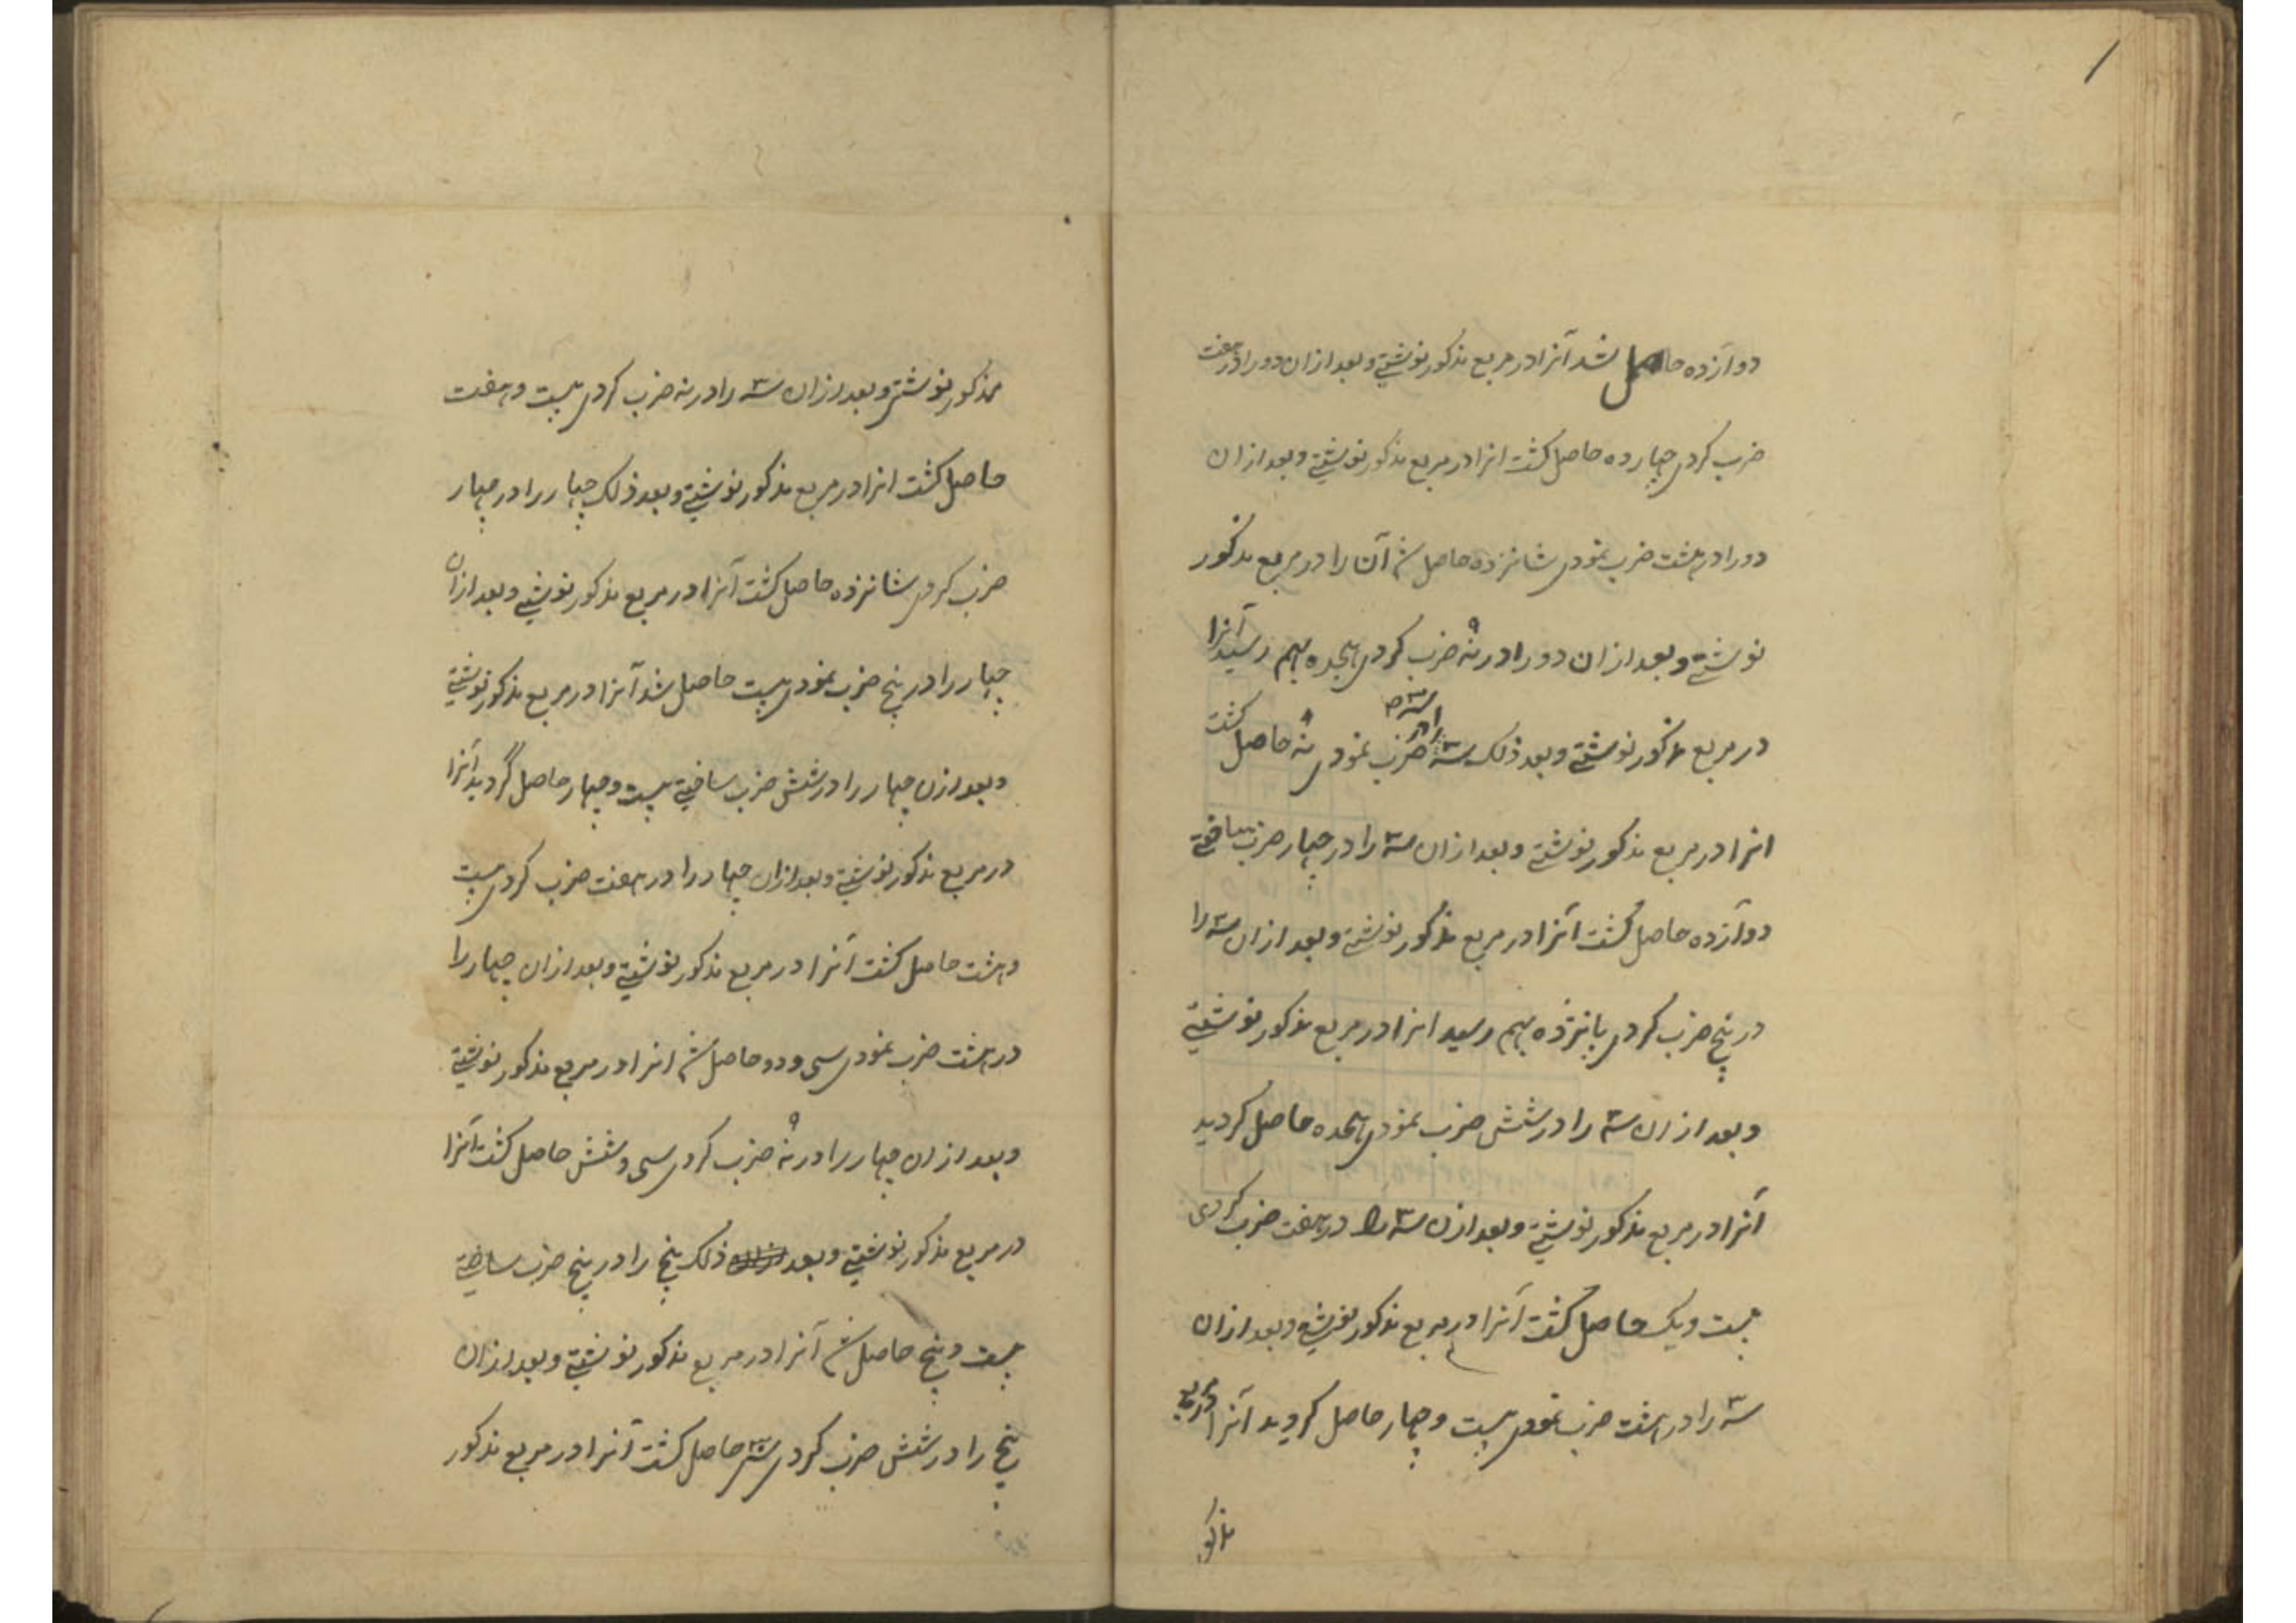 ۱
دوازده حاصل شد آنرا در مربع مذکور نوشتی و بعد ازان دو را در هفت
ضرب کردی چهارده حاصل کشت انرا در مربع مذکور نوشتی و بعد ازان
دو را در هشت ضرب نمودی شانزده حاصل شد آن را در مربع مذکور
نوشتی و بعد ازان دو را در نُه ۹ ضرب کردی هجده بهم رسید آنرا
در مربع مذکور نوشتی و بعد ذلک سه ۳ را در سه ۳ ضرب نمودی نه ۹ حاصل کشت
انرا در مربع مذکور نوشتی و بعد ازان سه ۳ را در چهار ضرب ساختی
دوآزده حاصل کشت آنرا در مربع مذکور نوشتی و بعد ازان سه ۳ را
در پنج ضرب کردی پانزده بهم رسید انرا در مربع مذکور نوشتی
و بعد ازان سه ۳ را در شش ضرب نمودی هجده حاصل کردید
آنرا در مربع مذکور نوشتی و بعد ازن سه ۳ را در هفت ضرب کردی
بیست و یک حاصل کشت آنرا در مربع مذکور نوشتی و بعد ازان
سه ۳ را در هشت ضرب نمودی بیست و چهار حاصل کردید آنرا در مربع
مذکور
مذکور نوشتی و بعد ازان سه ۳ را در نه ضرب کردی بیست و هفت
حاصل کشت انرا در مربع مذکور نوشتی و بعد ذلک چهار را در چهار
ضرب کردی شانزده حاصل کشت آنرا در مربع مذکور نوشتی و بعد ازان
چهار را در پنج ضرب نمودی بیست حاصل شد آنرا در مربع مذکور نوشتی
و بعد ازن چهار را در شش ضرب ساختی بیست و چهار حاصل گردید آنرا
در مربع مذکور نوشتی و بعد ازان چهار را در هفت ضرب کردی بیست
و هشت حاصل کشت آنرا در مربع مذکور نوشتی و بعد ازان چهار را
در هشت ضرب نمودی سی و دو حاصل شد انرا در مربع مذکور نوشتی
و بعد ازان چهار را در نُه ۹ ضرب کردی سی و شش حاصل کشت آنرا
در مربع مذکور نوشتی و بعد ذلک پنج را در پنج ضرب ساختی
بیست و پنج حاصل شد آنرا در مربع مذکور نوشتی و بعد ازان
پنج را در شش ضرب کردی سی ۳۰ حاصل کشت آنرا در مربع مذکور